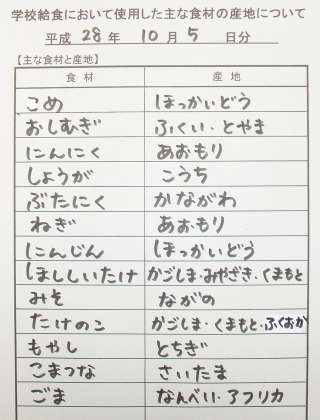 学校給食において使用した主な食材の産地について
平成 28 年 10 月 5 日分
【主な食材と産地】
食 材 産 地
こめ ほっかいどう
おしむぎ ふくい・とやま
にんにく あおもり
しょうが こうち
ぶたにく かながわ
ねぎ あおもり
にんじん ほっかいどう
ほししいたけ かごしま・みやざき・くまもと
みそ ながの
たけのこ かごしま・くまもと・ふくおか
もやし とちぎ
こまつな さいたま
ごま なんべい・アフリカ